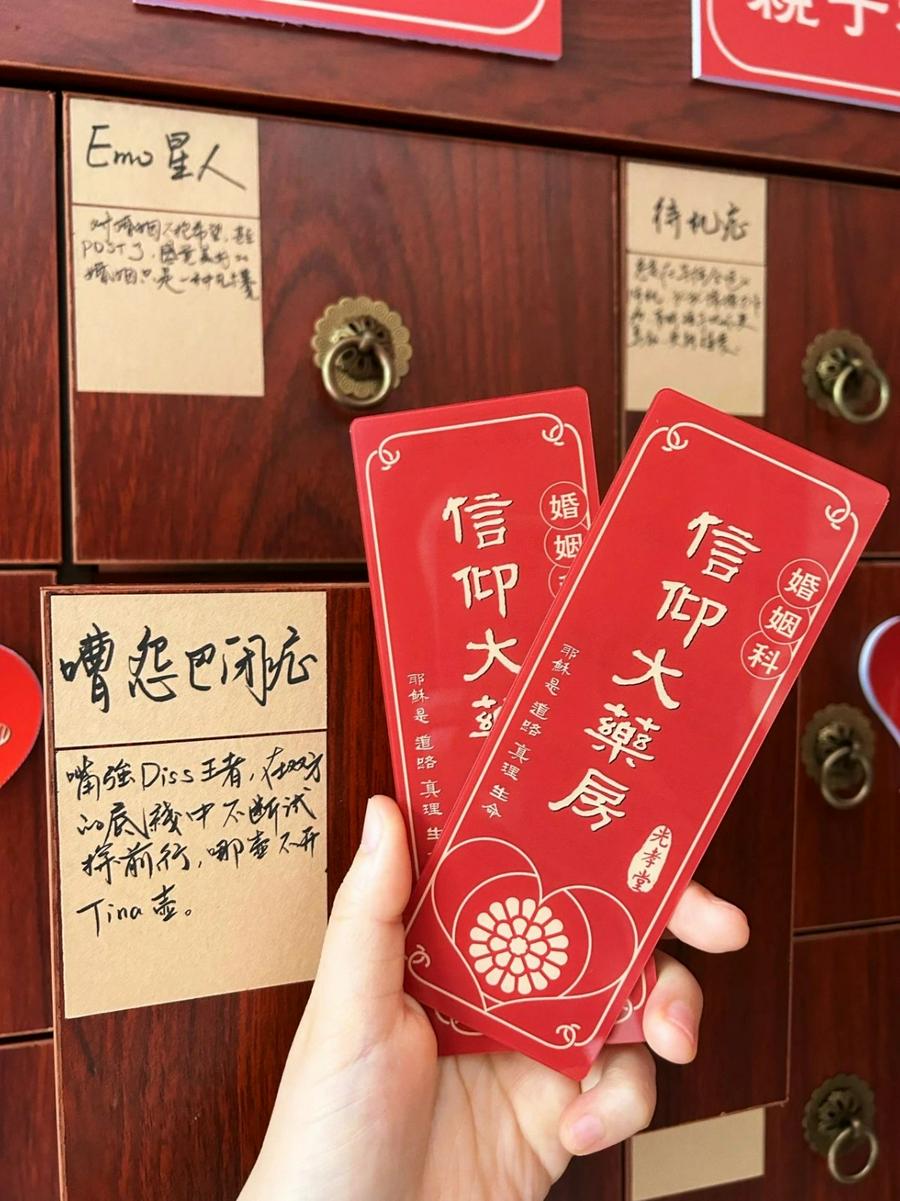 親子
Emo 星人
对婚姻不抱希望,甚至
POST了,感觉美好的
婚姻只是一种
待机症
嘈怨巴闭症
嘴強Diss王者,在双方
的底綫中不断试
探前行,哪壶不开
Tina壶。
信仰大藥
婚姻
耶穌是 道路 真理 生
信仰大藥房
婚姻科
耶穌是 道路 真理 生命
光孝堂